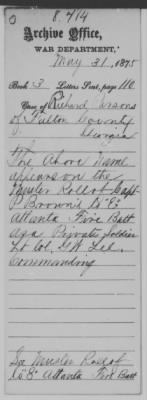 8. 414
Archive Office,
WAR DEPARTMENT,
May 31, 1875
Book: 3 Letters Sent, page 116
Case of Richard
of Fulton County
Georgia
The above Name
appears on the
Muster Roll of Capt
P Brown's Co "E"
Atlanta Fire Batt
as a Private Soldier
Lt Col. G.W. Lee
Commanding
See Muster Roll of
Co "B" Atlanta Fire Batt